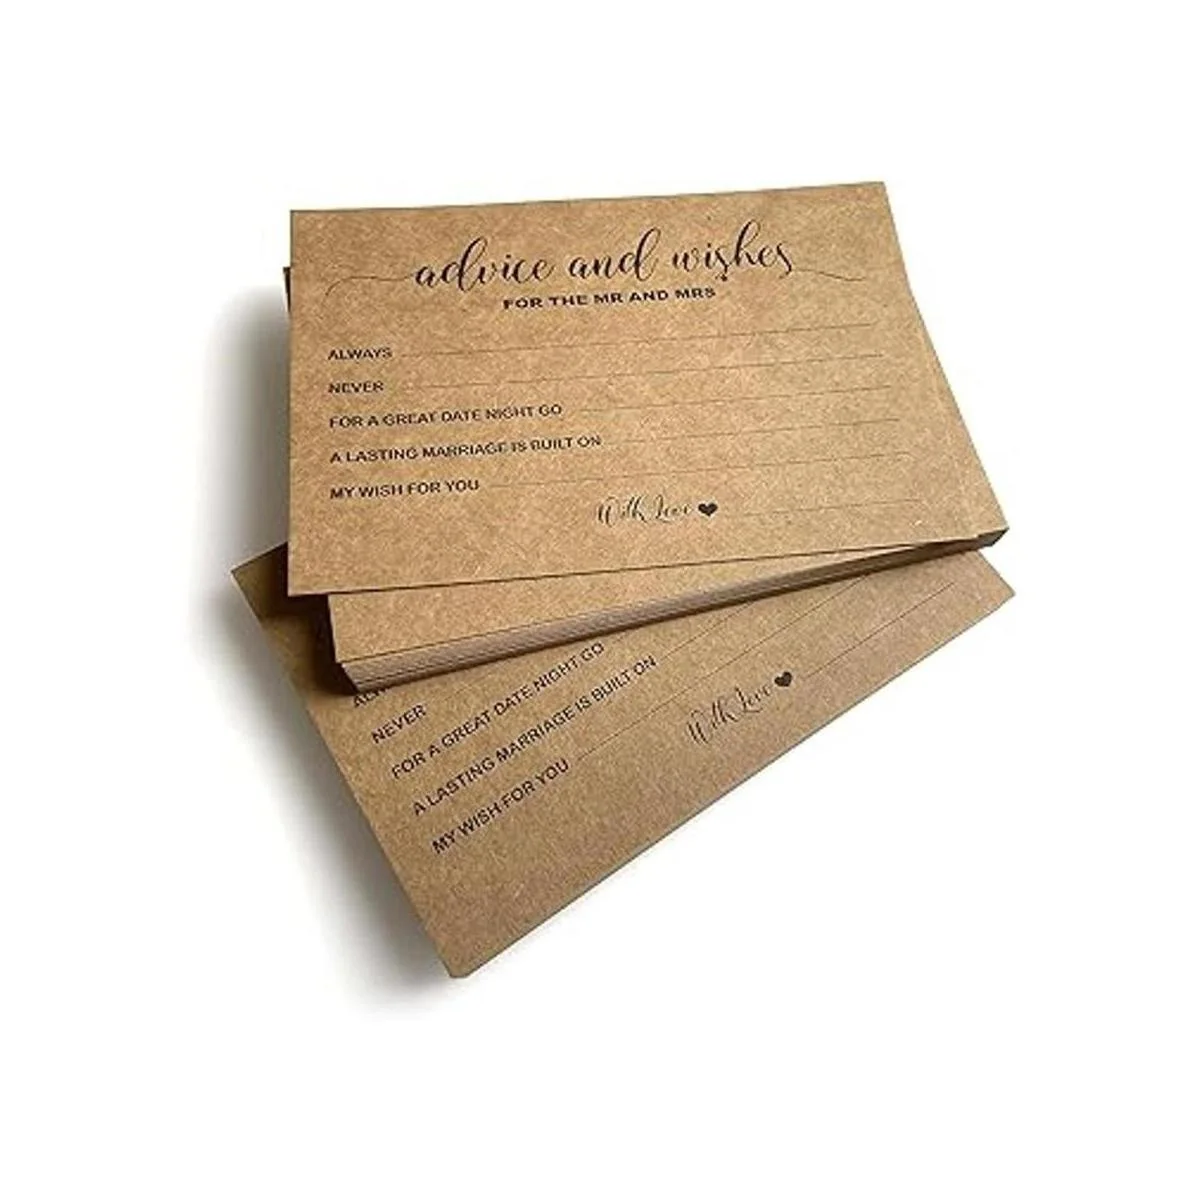 advice and wishes
FOR THE MR AND MRS
ALWAYS
NEVER
FOR A GREAT DATE NIGHT GO
A LASTING MARRIAGE IS BUILT ON
MY WISH FOR YOU
With Love
NEVER
FOR A GREAT DATE NIGHT GO
A LASTING MARRIAGE IS BUILT ON
MY WISH FOR YOU
With Love